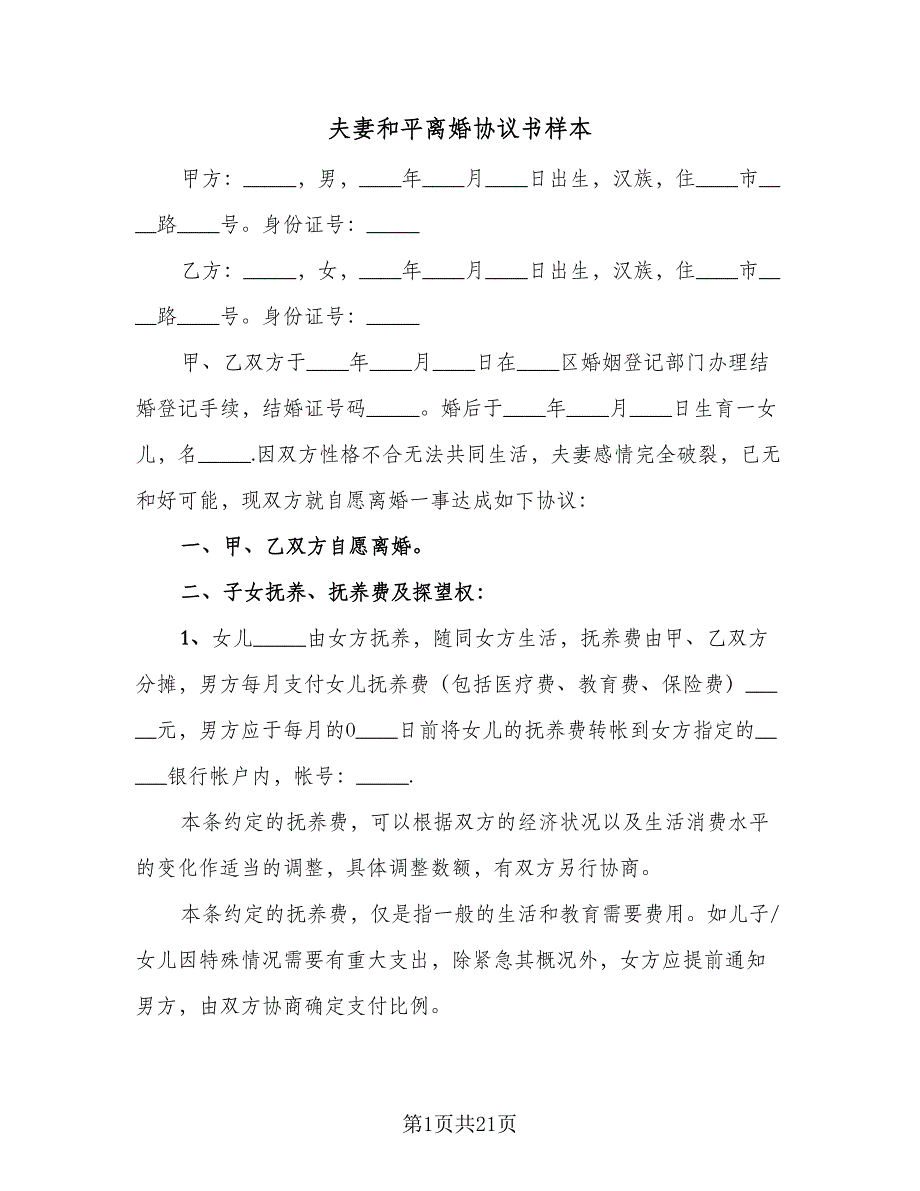 夫妻和平离婚协议书样本
甲方：_____，男，____年____月____日出生，汉族，住____市__
__路____号。身份证号：_____
乙方：_____，女，____年____月____日出生，汉族，住____市__
__路____号。身份证号：_____
甲、乙双方于____年____月____日在____区婚姻登记部门办理结
婚登记手续，结婚证号码_____。婚后于____年____月____日生育一女
儿，名_____.因双方性格不合无法共同生活，夫妻感情完全破裂，已无
和好可能，现双方就自愿离婚一事达成如下协议：
一、甲、乙双方自愿离婚。
二、子女抚养、抚养费及探望权：
1、女儿_____由女方抚养，随同女方生活，抚养费由甲、乙双方
分摊，男方每月支付女儿抚养费（包括医疗费、教育费、保险费）___
__元，男方应于每月的0____日前将女儿的抚养费转帐到女方指定的__
___银行帐户内，帐号：_____.
本条约定的抚养费，可以根据双方的经济状况以及生活消费水平
的变化作适当的调整，具体调整数额，有双方另行协商。
本条约定的抚养费，仅是指一般的生活和教育需要费用。如儿子/
女儿因特殊情况需要有重大支出，除紧急其概况外，女方应提前通知
男方，由双方协商确定支付比例。
第1页共21页